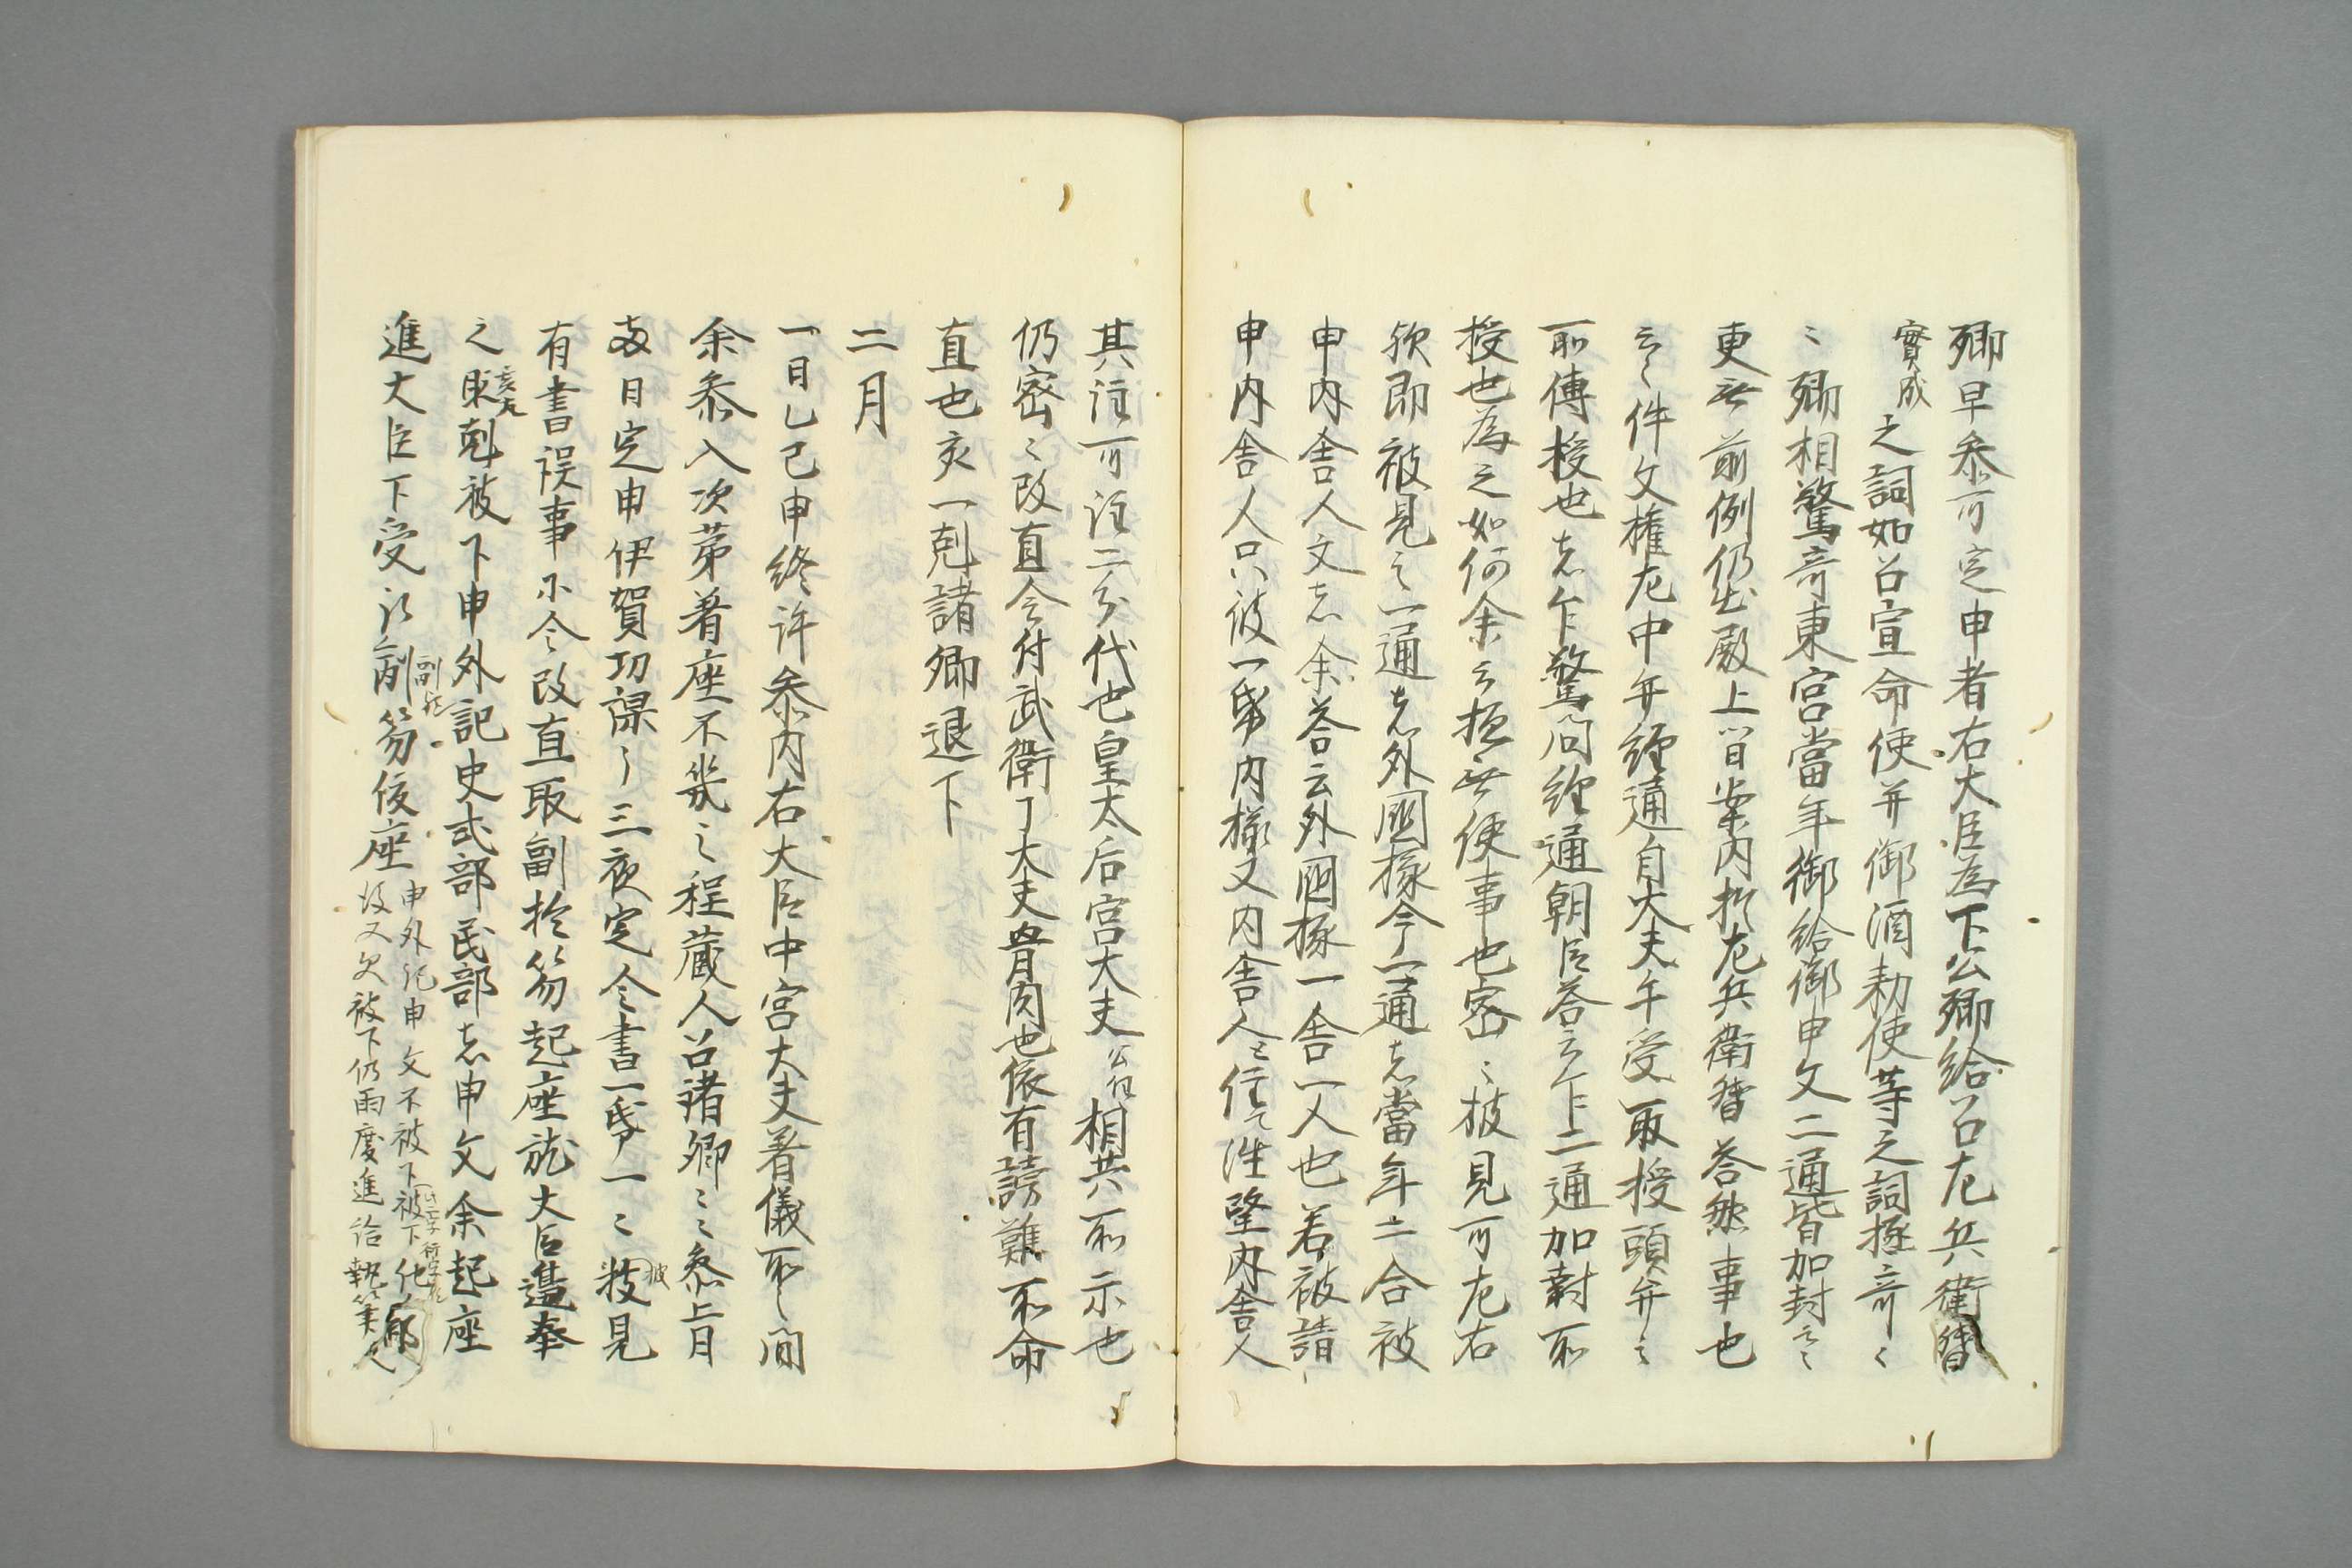 卿早参可定申者右大臣為下公卿給召左兵衛督
實成之詞如召宣命使并御酒勅使等之詞極奇〻
〻卿相驚奇東宮當年御給御申文二通皆加封云〻
更無前例仍出殿上以日案内於左兵衛督答無事也
云〻件文権左中弁経通自大夫午受取授頭弁云
所傳授也者乍驚問経通朝臣答云乍二通加封所
授也為之如何余云極無便事也密〻披見可左右
欤即被見之一通者外國掾今一通者當年二合被
申内舎人文者余答云外國掾一舎一人也若被請
申内舎人只彼一帋内様又内舎人任所望内舎人
其注可注二分代也皇太后宮大夫公任相共所示也
仍密〻改直令付武衛了大夫骨肉也依有謗難不命
直也亥一剋諸卿退下
二月
一日乙巳申終許参内右大臣中宮大夫着儀所之間
余参入次第着座不幾之程蔵人召諸卿〻〻参上日
両日定申伊賀功課了三夜定令書一帋一〻披見
有書誤事不令改直取副於笏起座就大臣邊奉
之頃剋被下申外記史式部民部者申文余起座
進大臣下受取副笏復座申外記申文不被下
後又欠被下仍両度進給執筆〻